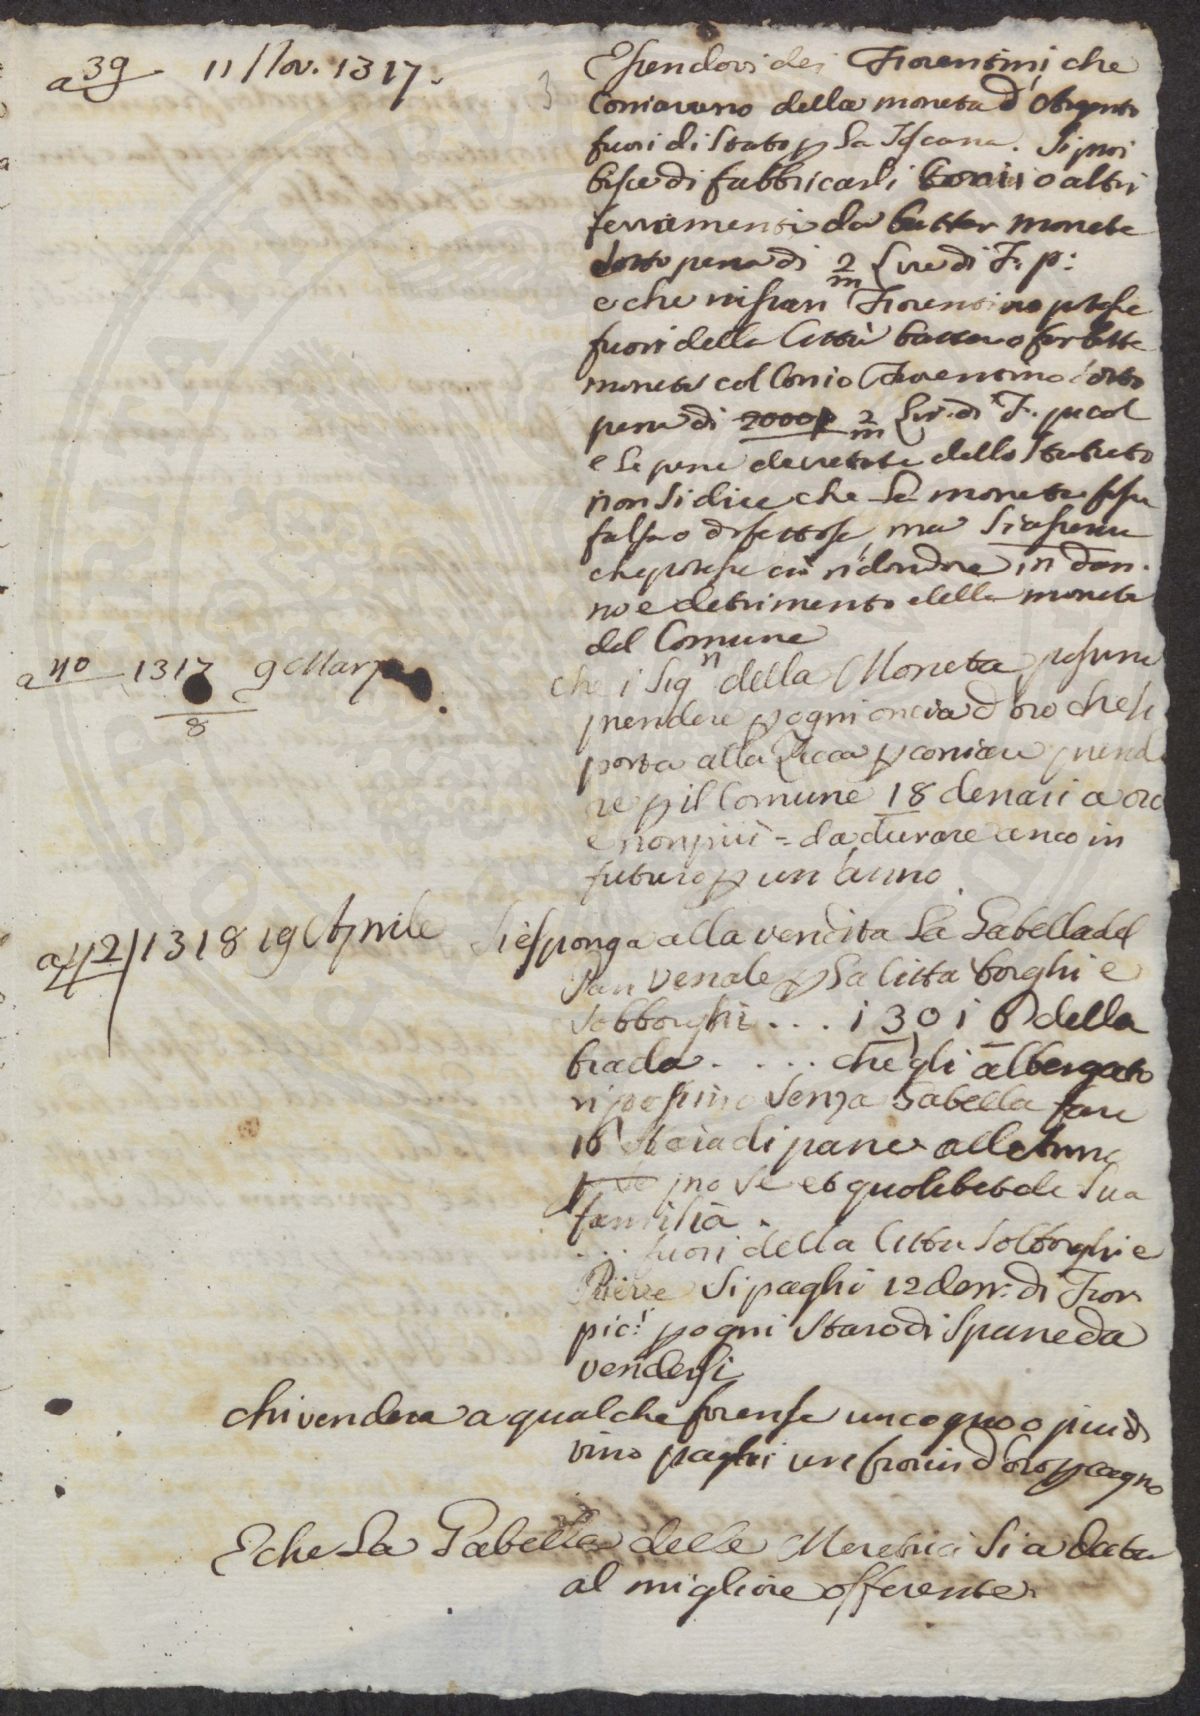 a 39 11 Nov. 1317.
Essendovi dei Fiorentini che
Coniavano della moneta d'Argento
fuori di Stato p la Toscana. Si proi
bisce di fabbricarli Conii o altri
ferramenti da batter monete
sotto pena di 2/m Lire di F. p:
e che nissun Fiorentino potesse
fuori della Città battere o far batte
monete col Conio Fiorentino sotto
pena di 2000 2/m Lir. di F. piccol
e le pene decretate dello Statuto
non si dice che le monete fosse
false o difettose, ma
che potesse ciò ridondare in dan.
no e detrimento delle monete
del Comune
a 40 1317/8 9 Marzo
che i Sign della Moneta possino
prendere p ogni oncia d'oro che si
porta alla Zecca p coniare prend
re p il Comune 18 denari a oro
e non più = da durare anco in
futuro p un anno.
a 42 1318 19 Aprile Si esponga alla vendita la Gabella del
Pan venale p la citta borghi e
Sobborghi .... 1301 6 della
biada ..... che gli albergato
ri possino senza Gabella fare
16 staia di pane alletrine
pro se et quolibet de sua
familia.
... fuori della Citta Sobborghi e
Pieve si paghi 12 den: di Fior
pic: p ogni staro di pane da
vendersi
Chi vendera a qualche forense un cogno o piu di
vino paghi un fiorin d'oro p cogno
E che la Gabella delle Meretrici si a data
al migliore offerente